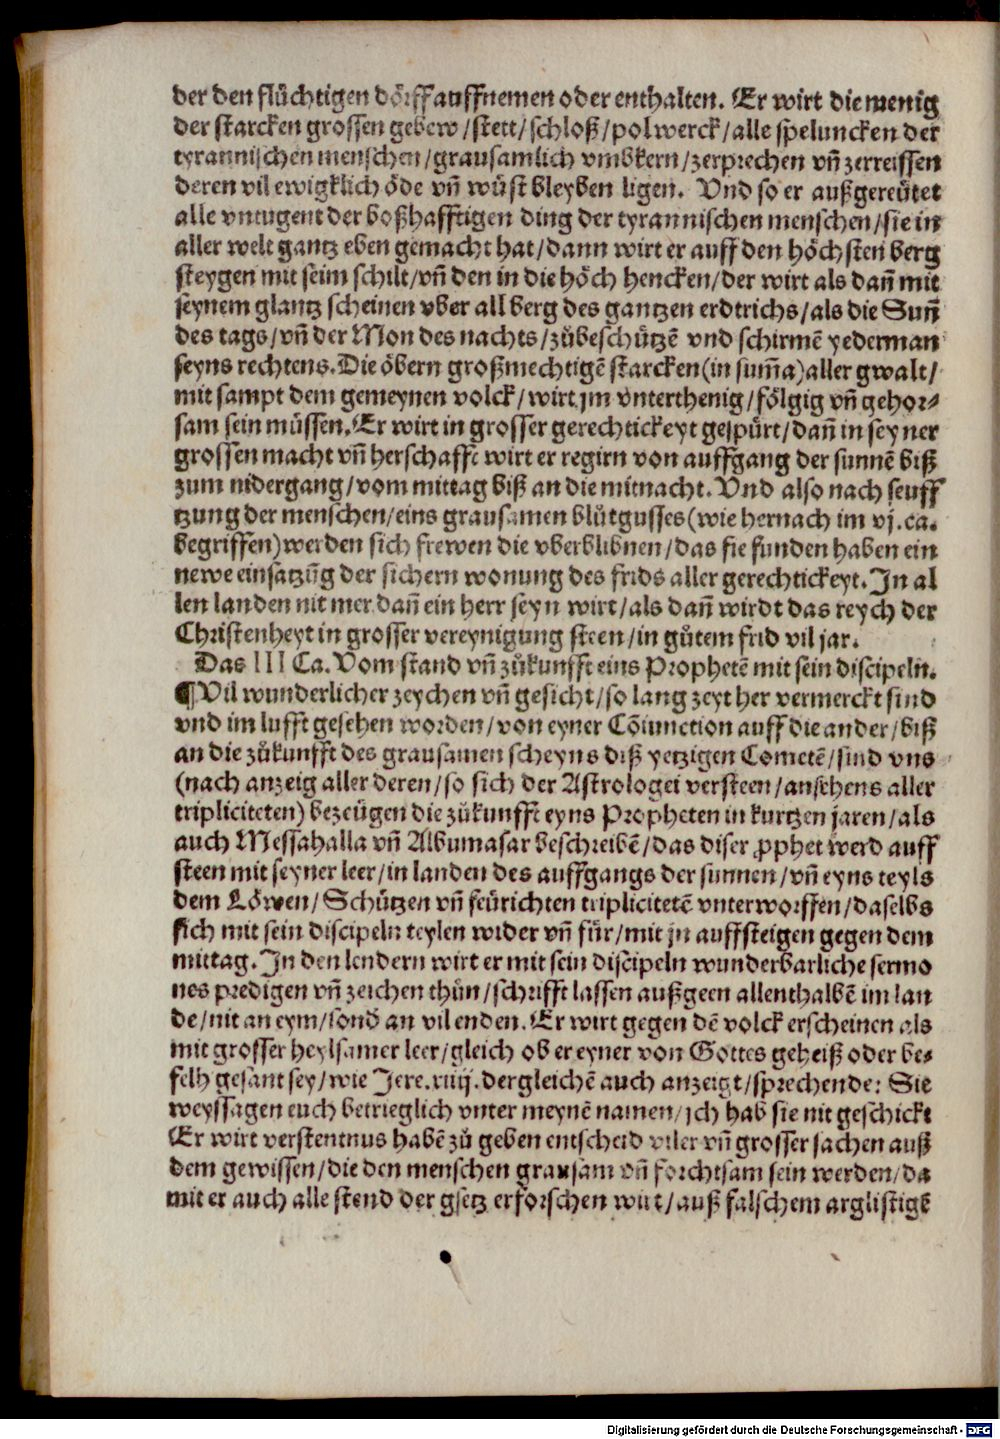 der den flüchtigen dörff auffnemen oder enthalten. Er wirt die menig
der starcken grossen gebew / stett / schloß / polwerck / alle speluncken der
tyrannischen menschen / grausamlich vmbkern / zerprechen vñ zerreissen
deren vil ewigklich öde vñ wüst bleyben ligen. Vnd so er außgereütet
alle vntugent der boßhafftigen ding der tyrannischen menschen / sie in
aller welt gantz eben gemacht hat / dann wirt er auff den höchsten berg
steygen mit seim schilt / vñ den in die höch hencken / der wirt als dañ mit
seynem glantz scheinen vber all berg des gantzen erdtrichs / als die Suñ
des tags / vñ der Mon des nachts / zůbeschützē vnd schirmē yederman
seyns rechtens. Die öbern großmechtigē starcken (in sum̃a) aller gwalt /
mit sampt dem gemeynen volck / wirt jm vnterthenig / fölgig vñ gehor⸗
sam sein müssen. Er wirt in grosser gerechtickeyt gespürt / dañ in seyner
grossen macht vñ herschafft wirt er regirn von auffgang der sunnē biß
zum nidergang / vom mittag biß an die mitnacht. Vnd also nach seuff
tzung der menschen / eins grausamen blůtgusses (wie hernach im vj. ca.
begriffen) werden sich frewen die vberblibnen / das sie funden haben ein
newe einsatzūg der sichern wonung des frids aller gerechtickeyt. In al
len landen nit mer dañ ein herr seyn wirt / als dañ wirdt das reych der
Christenheyt in grosser vereynigung steen / in gůtem frid vil jar.
Das III Ca. Vom stand vñ zůkunfft eins Prophetē mit sein discipeln.
¶ Vil wunderlicher zeychen vñ gesicht / so lang zeyt her vermerckt sind
vnd im lufft gesehen worden / von eyner Cōiunction auff die ander / biß
an die zůkunfft des grausamen scheyns diß yetzigen Cometē / sind vns
(nach anzeig aller deren / so sich der Astrologei versteen / ansehens aller
tripliciteten) bezeügen die zůkunfft eyns Propheten in kurtzen jaren / als
auch Messahalla vñ Albumasar beschreibē / das diser ꝓphet werd auff
steen mit seyner leer / in landen des auffgangs der sunnen / vñ eyns teyls
dem Löwen / Schützen vñ feürichten tripliciteē vnterworffen / daselbs
sich mit sein discipeln teylen wider vñ für / mit jn auffsteigen gegen dem
mittag. In den lendern wirt er mit sein discipeln wunderbarliche sermo
nes predigen vñ zeichen thůn / schrifft lassen außgeen allenthalbē im lan
de / nit an eym / sond̄ an vil enden. Er wirt gegen dē volck erscheinen als
mit grosser heylsamer leer / gleich ob er eyner von Gottes geheiß oder be⸗
felh gesant sey / wie Jere. xiiij. dergleichē auch anzeigt / sprechende: Sie
weyssagen euch betrieglich vnter meynē namen / jch hab sie nit geschickt
Er wirt verstentnus habē zů geben entscheid viler vñ grosser sachen auß
dem gewissen / die den menschen grausam vñ forchtsam sein werden / da
mit er auch alle stend der gsetz erforschen wirt / auß falschem arglistigē
Digitalisierung gefördert durch die Deutsche Forschungsgemeinschaft - DFG